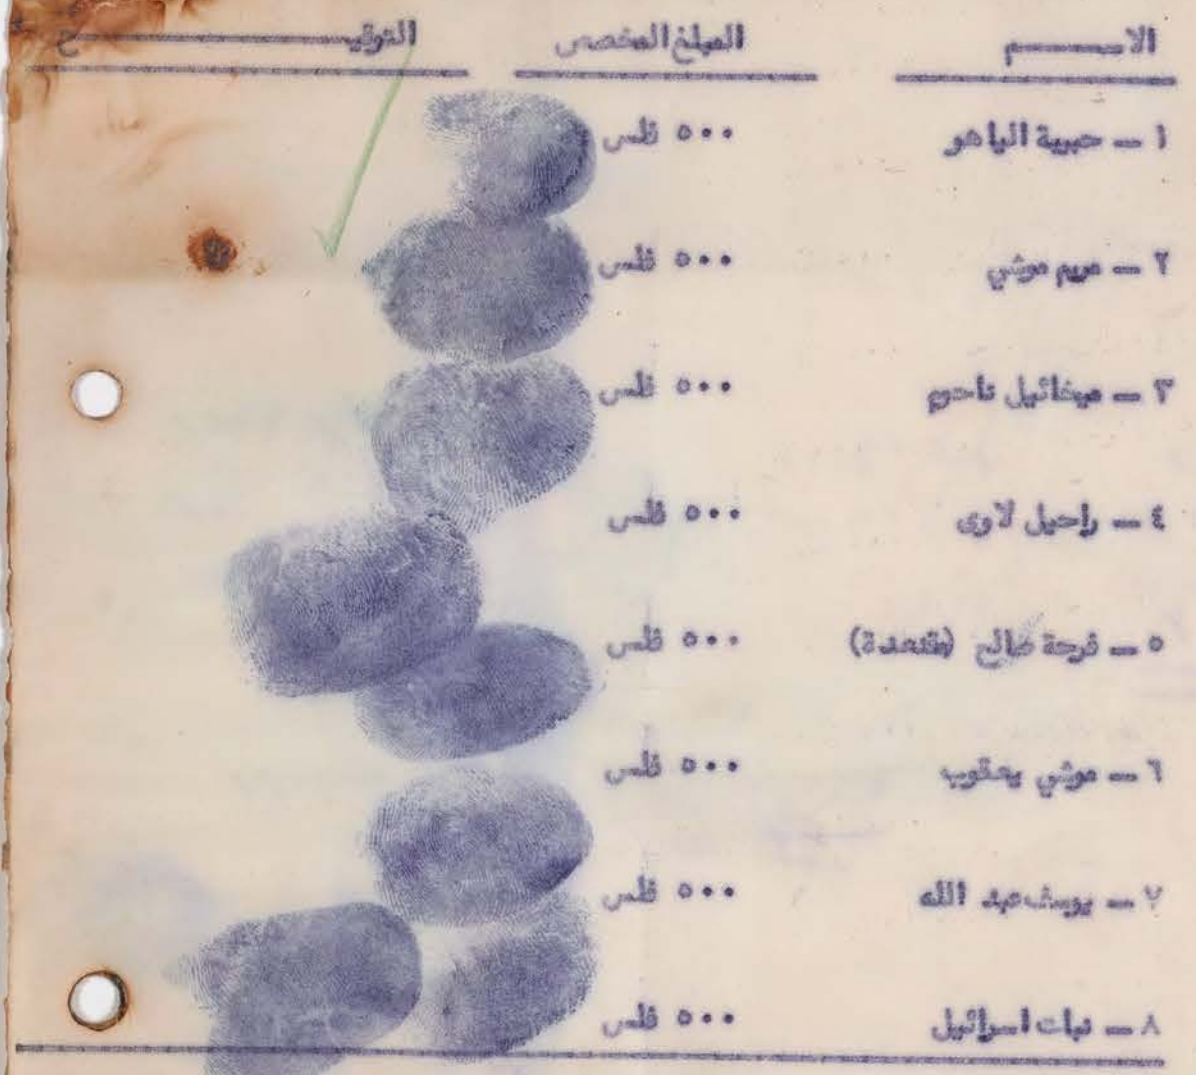 الاسم المبلغ المخصص التوقيع
١ - حبيبة الياهو ٥٠٠ فلس
٢ - مريم موشي ٥٠٠ فلس
٣ - ميخائيل ناحوم ٥٠٠ فلس
٤ - راحيل لاوى ٥٠٠ فلس
٥ - فرحة صالح (مقعدة) ٥٠٠ فلس
٦ - موشي يعقوب ٥٠٠ فلس
٧ - يوسف عبد الله ٥٠٠ فلس
٨ - نبات اسرائيل ٥٠٠ فلس